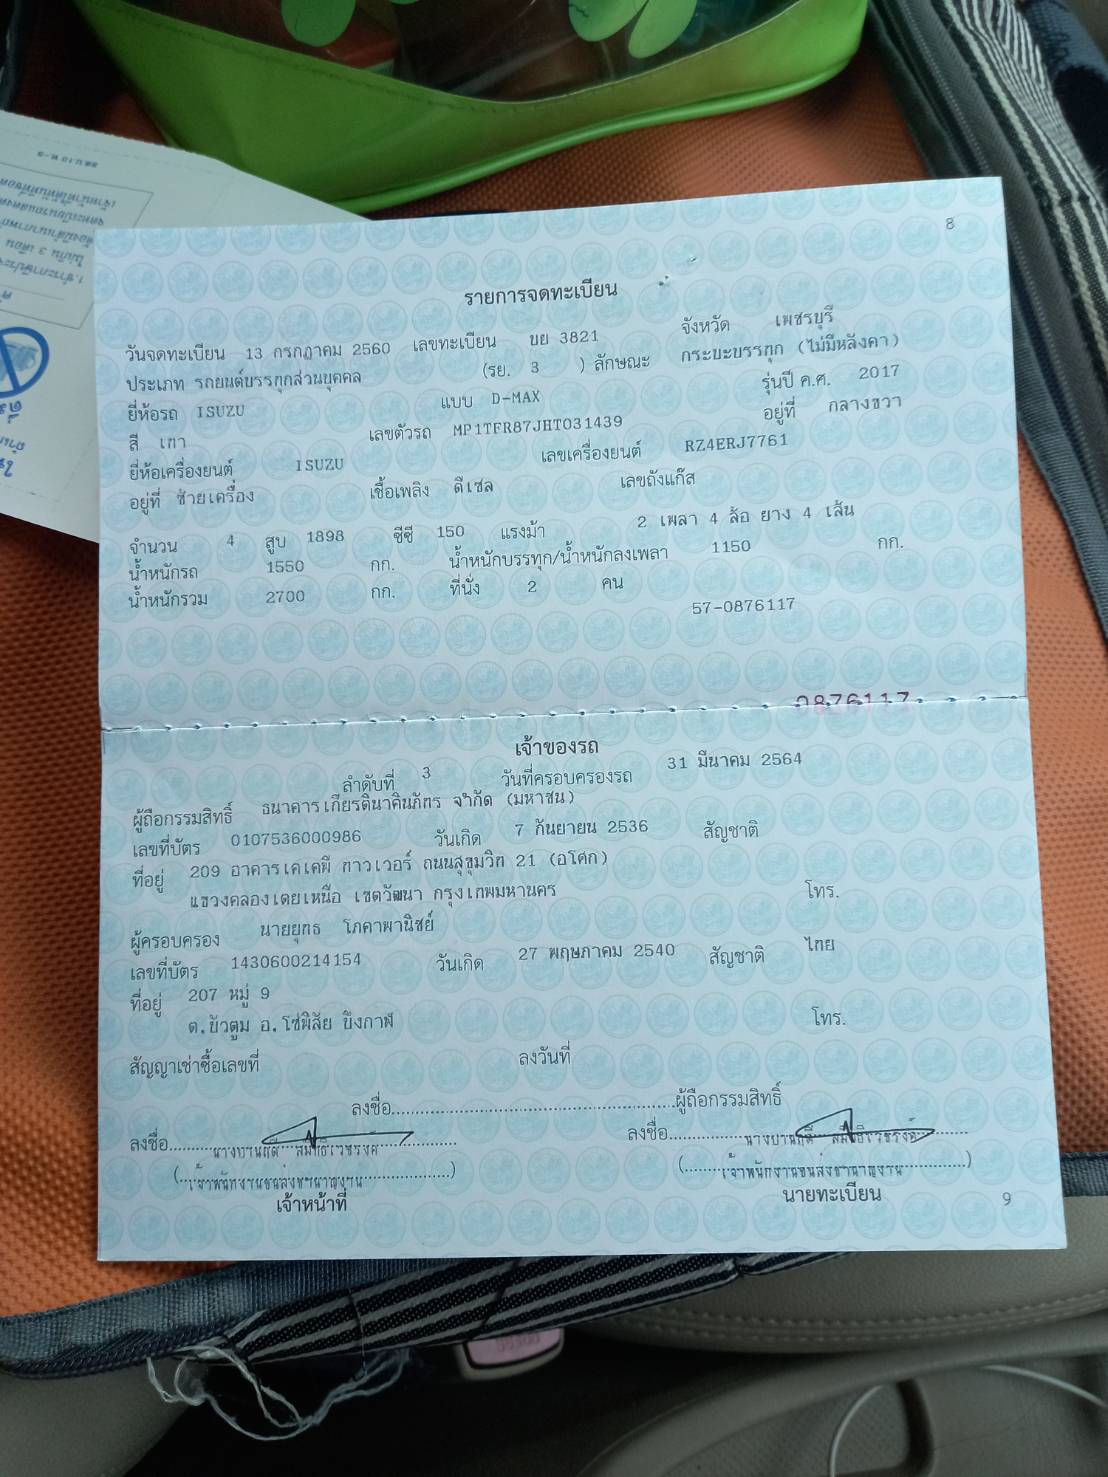 8
รายการจดทะเบียน
วันจดทะเบียน 13 กรกฎาคม 2560 เลขทะเบียน บย 3821 จังหวัด เพชรบุรี
ประเภท รถยนต์บรรทุกส่วนบุคคล (รย. 3 ) ลักษณะ กระบะบรรทุก (ไม่มีหลังคา)
ยี่ห้อรถ ISUZU แบบ D-MAX รุ่นปี ค.ศ. 2017
สี เทา เลขตัวรถ MP1TFR87JHT031439 อยู่ที่ กลางขวา
ยี่ห้อเครื่องยนต์ ISUZU เลขเครื่องยนต์ RZ4ERJ7761
อยู่ที่ ซ้ายเครื่อง เชื้อเพลิง ดีเซล เลขถังแก๊ส
จำนวน 4 สูบ 1898 ซีซี 150 แรงม้า 2 เพลา 4 ล้อ ยาง 4 เส้น
น้ำหนักรถ 1550 กก. น้ำหนักบรรทุก/น้ำหนักลงเพลา 1150 กก.
น้ำหนักรวม 2700 กก. ที่นั่ง 2 คน
57-0876117
0876117
เจ้าของรถ
ลำดับที่ 3 วันที่ครอบครองรถ 31 มีนาคม 2564
ผู้ถือกรรมสิทธิ์ ธนาคารเกียรตินาคินภัทร จำกัด (มหาชน)
เลขที่บัตร 0107536000986 วันเกิด 7 กันยายน 2536 สัญชาติ
ที่อยู่ 209 อาคารเคเคพี ทาวเวอร์ ถนนสุขุมวิท 21 (อโศก)
แขวงคลองเตยเหนือ เขตวัฒนา กรุงเทพมหานคร โทร.
ผู้ครอบครอง นายยุทธ โภคาพานิชย์
เลขที่บัตร 1430600214154 วันเกิด 27 พฤษภาคม 2540 สัญชาติ ไทย
ที่อยู่ 207 หมู่ 9
ต.บัวตูม อ.โซ่พิสัย บึงกาฬ โทร.
สัญญาเช่าซื้อเลขที่ ลงวันที่
ลงชื่อ..........ผู้ถือกรรมสิทธิ์
ลงชื่อ.......... ลงชื่อ..........
(..เจ้าพนักงานขนส่งชำนาญงาน..) (..เจ้าพนักงานขนส่งชำนาญงาน..)
เจ้าหน้าที่ นายทะเบียน
9